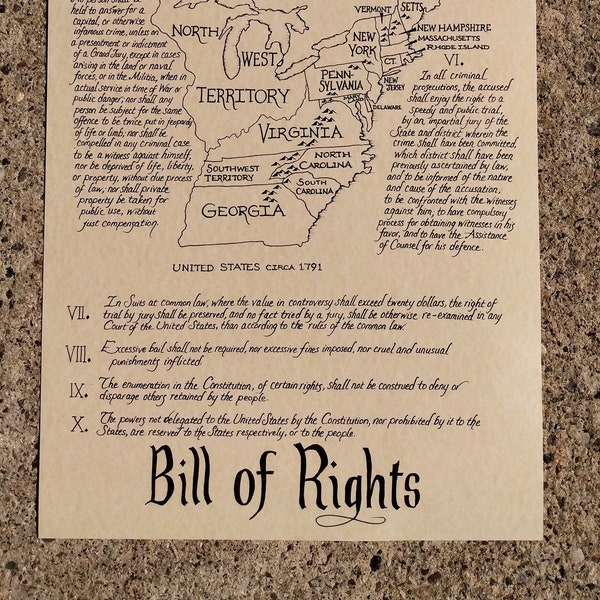 held to answer for a
capital, or otherwise
infamous crime, unless on
a presentment or indictment
of a Grand Jury, except in cases
arising in the land or naval
forces, or in the Militia, when in
actual service in time of War or
public danger; nor shall any
person be subject for the same
offence to be twice put in jeopardy
of life or limb; nor shall be
compelled in any criminal case
to be a witness against himself,
nor be deprived of life, liberty,
or property, without due process
of law; nor shall private
property be taken for
public use, without
just compensation.
NORTH
WEST
TERRITORY
VERMONT
SETTS
NEW HAMPSHIRE
MASSACHUSETTS
RHODE ISLAND
NEW
YORK
CT.
PENN-
SYLVANIA
NEW
JERSEY
DELAWARE
VIRGINIA
SOUTHWEST
TERRITORY
NORTH
CAROLINA
SOUTH
CAROLINA
GEORGIA
UNITED STATES CIRCA 1791
VI.
In all criminal
prosecutions, the accused
shall enjoy the right to a
speedy and public trial,
by an impartial jury of the
State and district wherein the
crime shall have been committed,
which district shall have been
previously ascertained by law,
and to be informed of the nature
and cause of the accusation;
to be confronted with the witnesses
against him; to have compulsory
process for obtaining witnesses in his
favor, and to have the Assistance
of Counsel for his defence.
VII. In Suits at common law, where the value in controversy shall exceed twenty dollars, the right of
trial by jury shall be preserved, and no fact tried by a jury, shall be otherwise re-examined in any
Court of the United States, than according to the rules of the common law.
VIII. Excessive bail shall not be required, nor excessive fines imposed, nor cruel and unusual
punishments inflicted.
IX. The enumeration in the Constitution, of certain rights, shall not be construed to deny or
disparage others retained by the people.
X. The powers not delegated to the United States by the Constitution, nor prohibited by it to the
States, are reserved to the States respectively, or to the people.
Bill of Rights